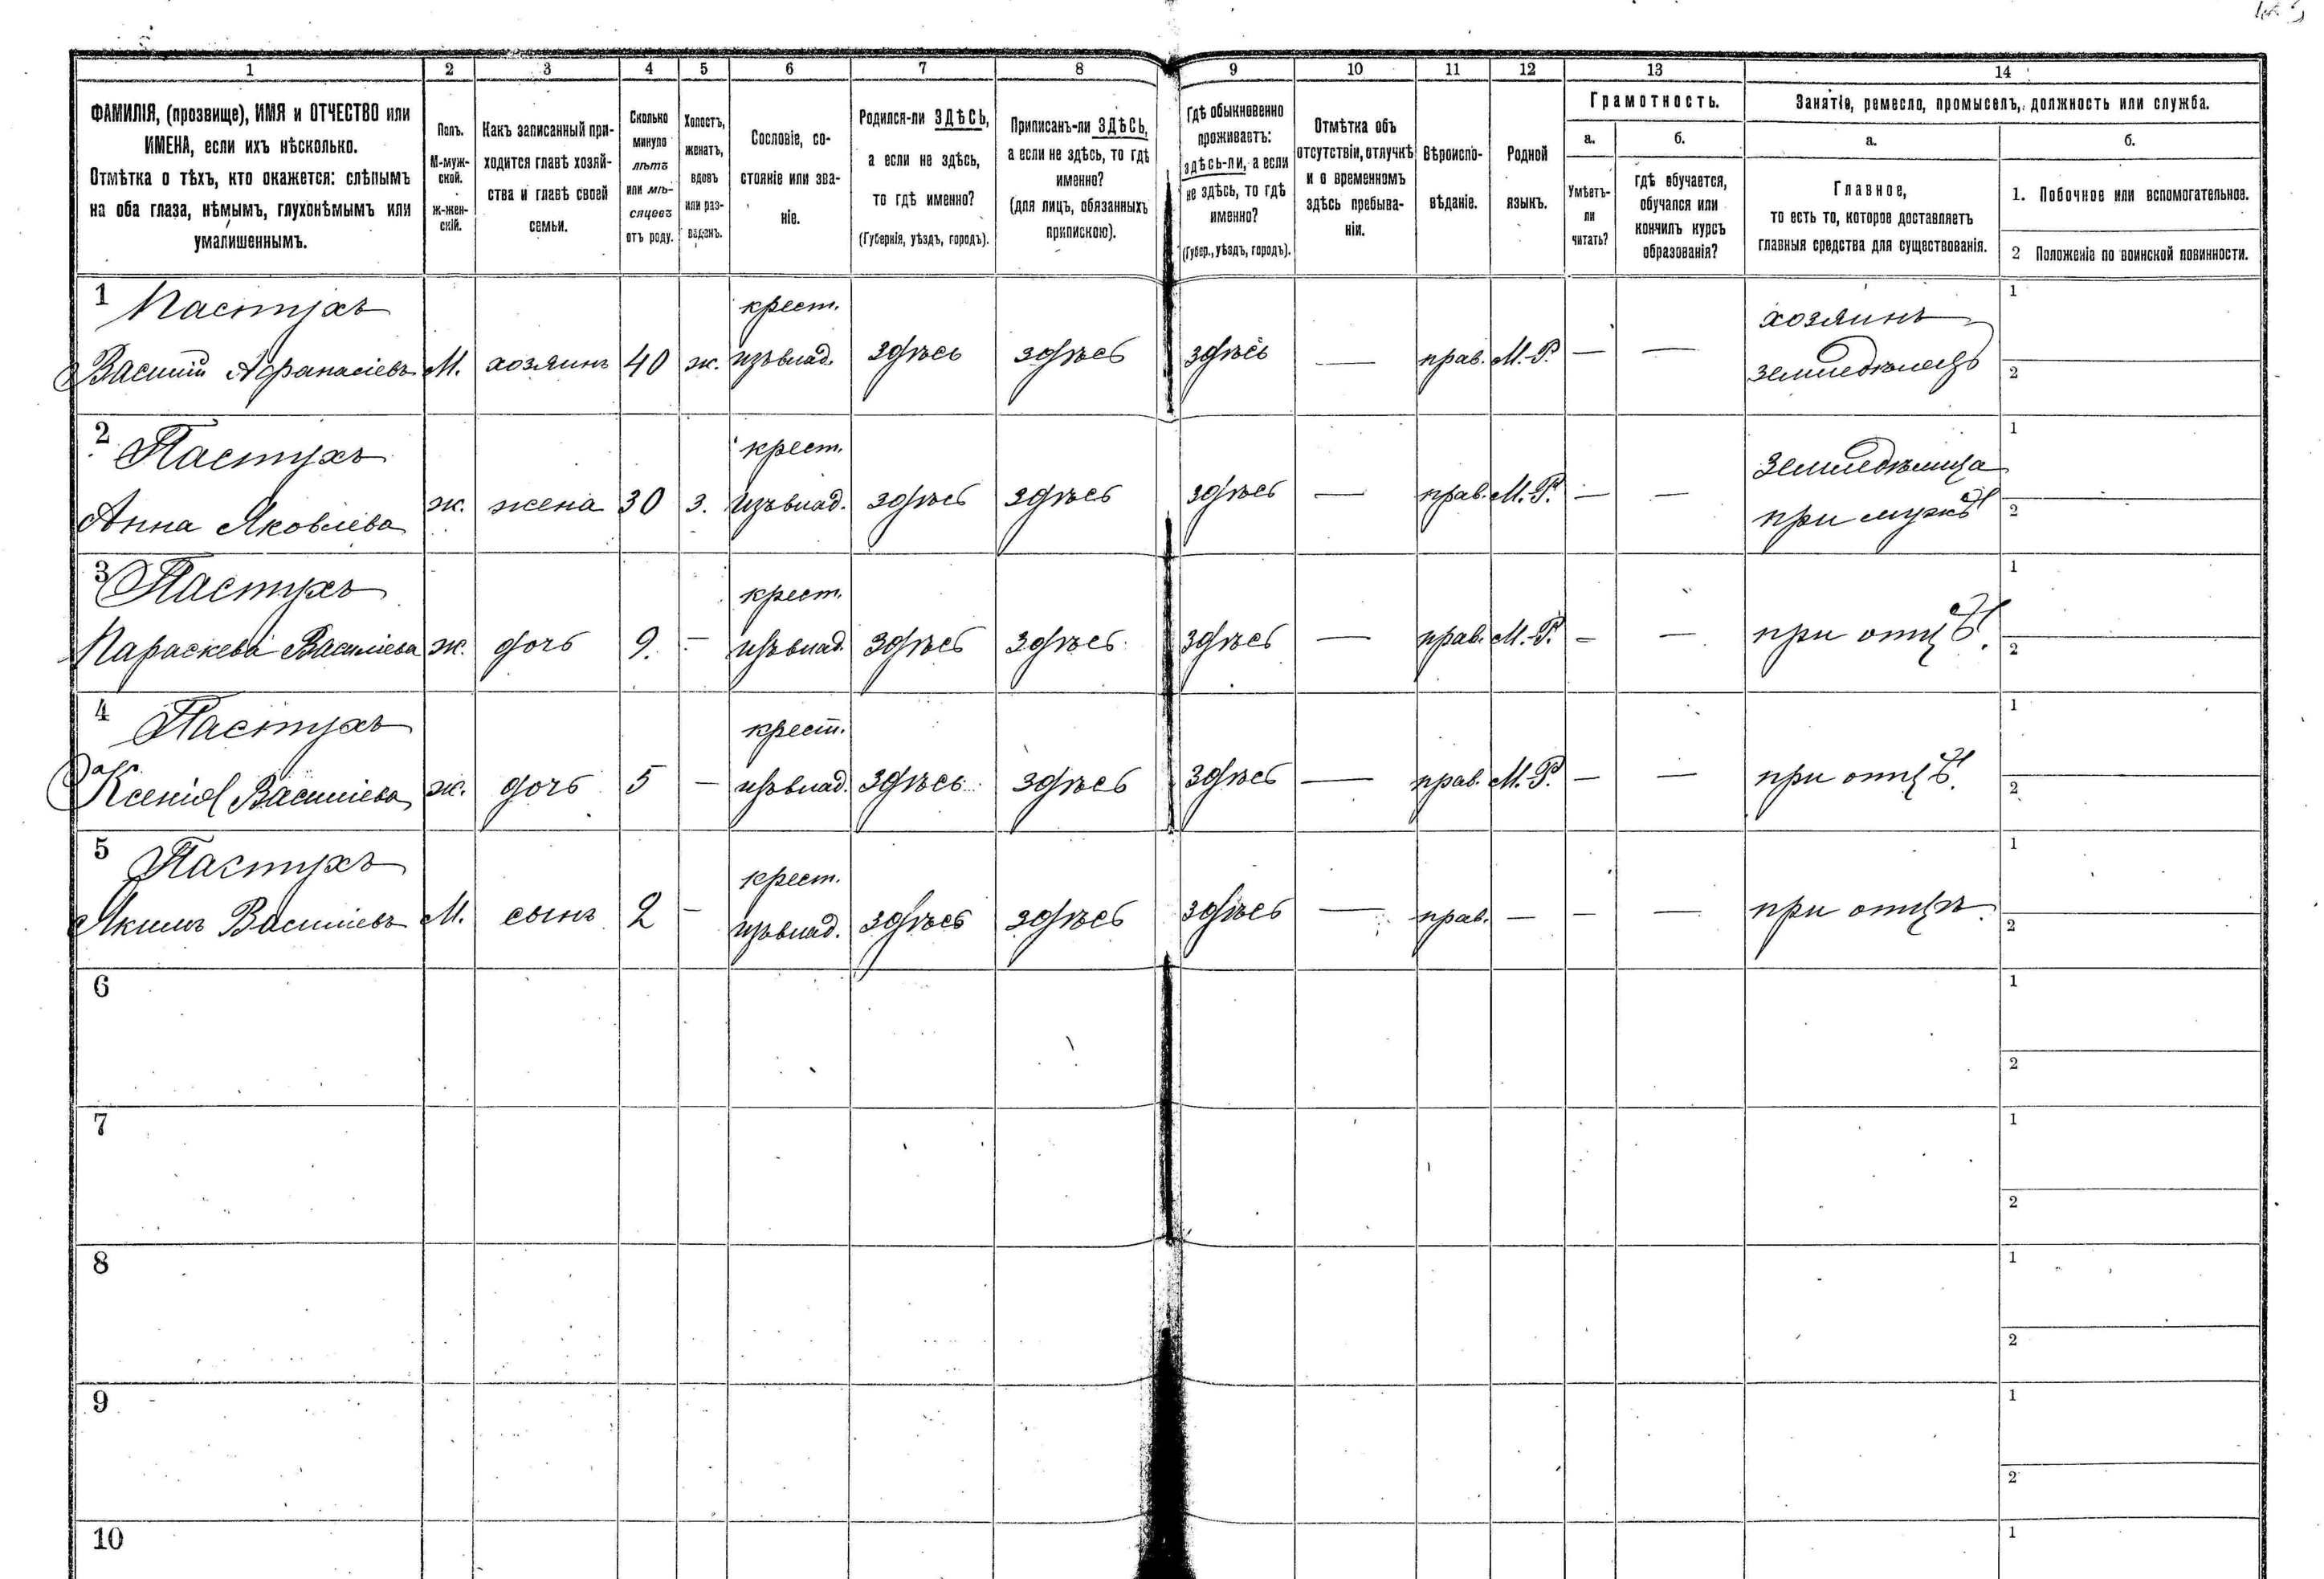 1 2 3 4 5 6 7 8 9 10 11 12 13 14
ФАМИЛІЯ, (прозвище), ИМЯ и ОТЧЕСТВО или
ИМЕНА, если ихъ нѣсколько.
Отмѣтка о тѣхъ, кто окажется: слѣпымъ
на оба глаза, нѣмымъ, глухонѣмымъ или
умалишеннымъ.
Полъ.
М-муж-
ской.
ж-жен-
скій.
Какъ записанный при-
ходится главѣ хозяй-
ства и главѣ своей
семьи.
Сколько
минуло
лѣтъ
или мѣ-
сяцевъ
отъ роду.
Холостъ,
женатъ,
вдовъ
или раз-
веденъ.
Сословіе, со-
стояніе или зва-
ніе.
Родился-ли ЗДѢСЬ,
а если не здѣсь,
то гдѣ именно?
(Губернія, уѣздъ, городъ).
Приписанъ-ли ЗДѢСЬ,
а если не здѣсь, то гдѣ
именно?
(для лицъ, обязанныхъ
припискою).
Гдѣ обыкновенно
проживаетъ:
здѣсь-ли, а если
не здѣсь, то гдѣ
именно?
(Губер., уѣздъ, городъ).
Отмѣтка объ
отсутствіи, отлучкѣ
и о временномъ
здѣсь пребыва-
ніи.
Вѣроиспо-
вѣданіе.
Родной
языкъ.
Грамотность.
а.
Умѣетъ-
ли
читать?
б.
гдѣ обучается,
обучался или
кончилъ курсъ
образованія?
Занятіе, ремесло, промыселъ, должность или служба.
а.
Главное,
то есть то, которое доставляетъ
главныя средства для существованія.
б.
1. Побочное или вспомогательное.
2 Положеніе по воинской повинности.
1 Пастухъ крест. хозяинъ 1
Василій Афанасіевъ М. хозяинъ 40 ж. изъ влад. здѣсь здѣсь здѣсь — прав. М.-Р. — — земледѣлецъ 2
2 Пастухъ крест. земледѣлица 1
Анна Яковлева ж. жена 30 з. изъ влад. здѣсь здѣсь здѣсь — прав. М.-Р. — — при мужѣ 2
3 Пастухъ крест. 1
Параскева Василіева ж. дочь 9. — изъ влад. здѣсь здѣсь здѣсь — прав. М.-Р. — — при отцѣ. 2
4 Пастухъ крест. 1
Ксенія Василіева ж. дочь 5 — изъ влад. здѣсь здѣсь здѣсь — прав. М.-Р. — — при отцѣ. 2
5 Пастухъ крест. 1
Якимъ Василіевъ М. сынъ 2 — изъ влад. здѣсь здѣсь здѣсь — прав. — — — при отцѣ. 2
6 1
2
7 1
2
8 1
2
9 1
2
10 1